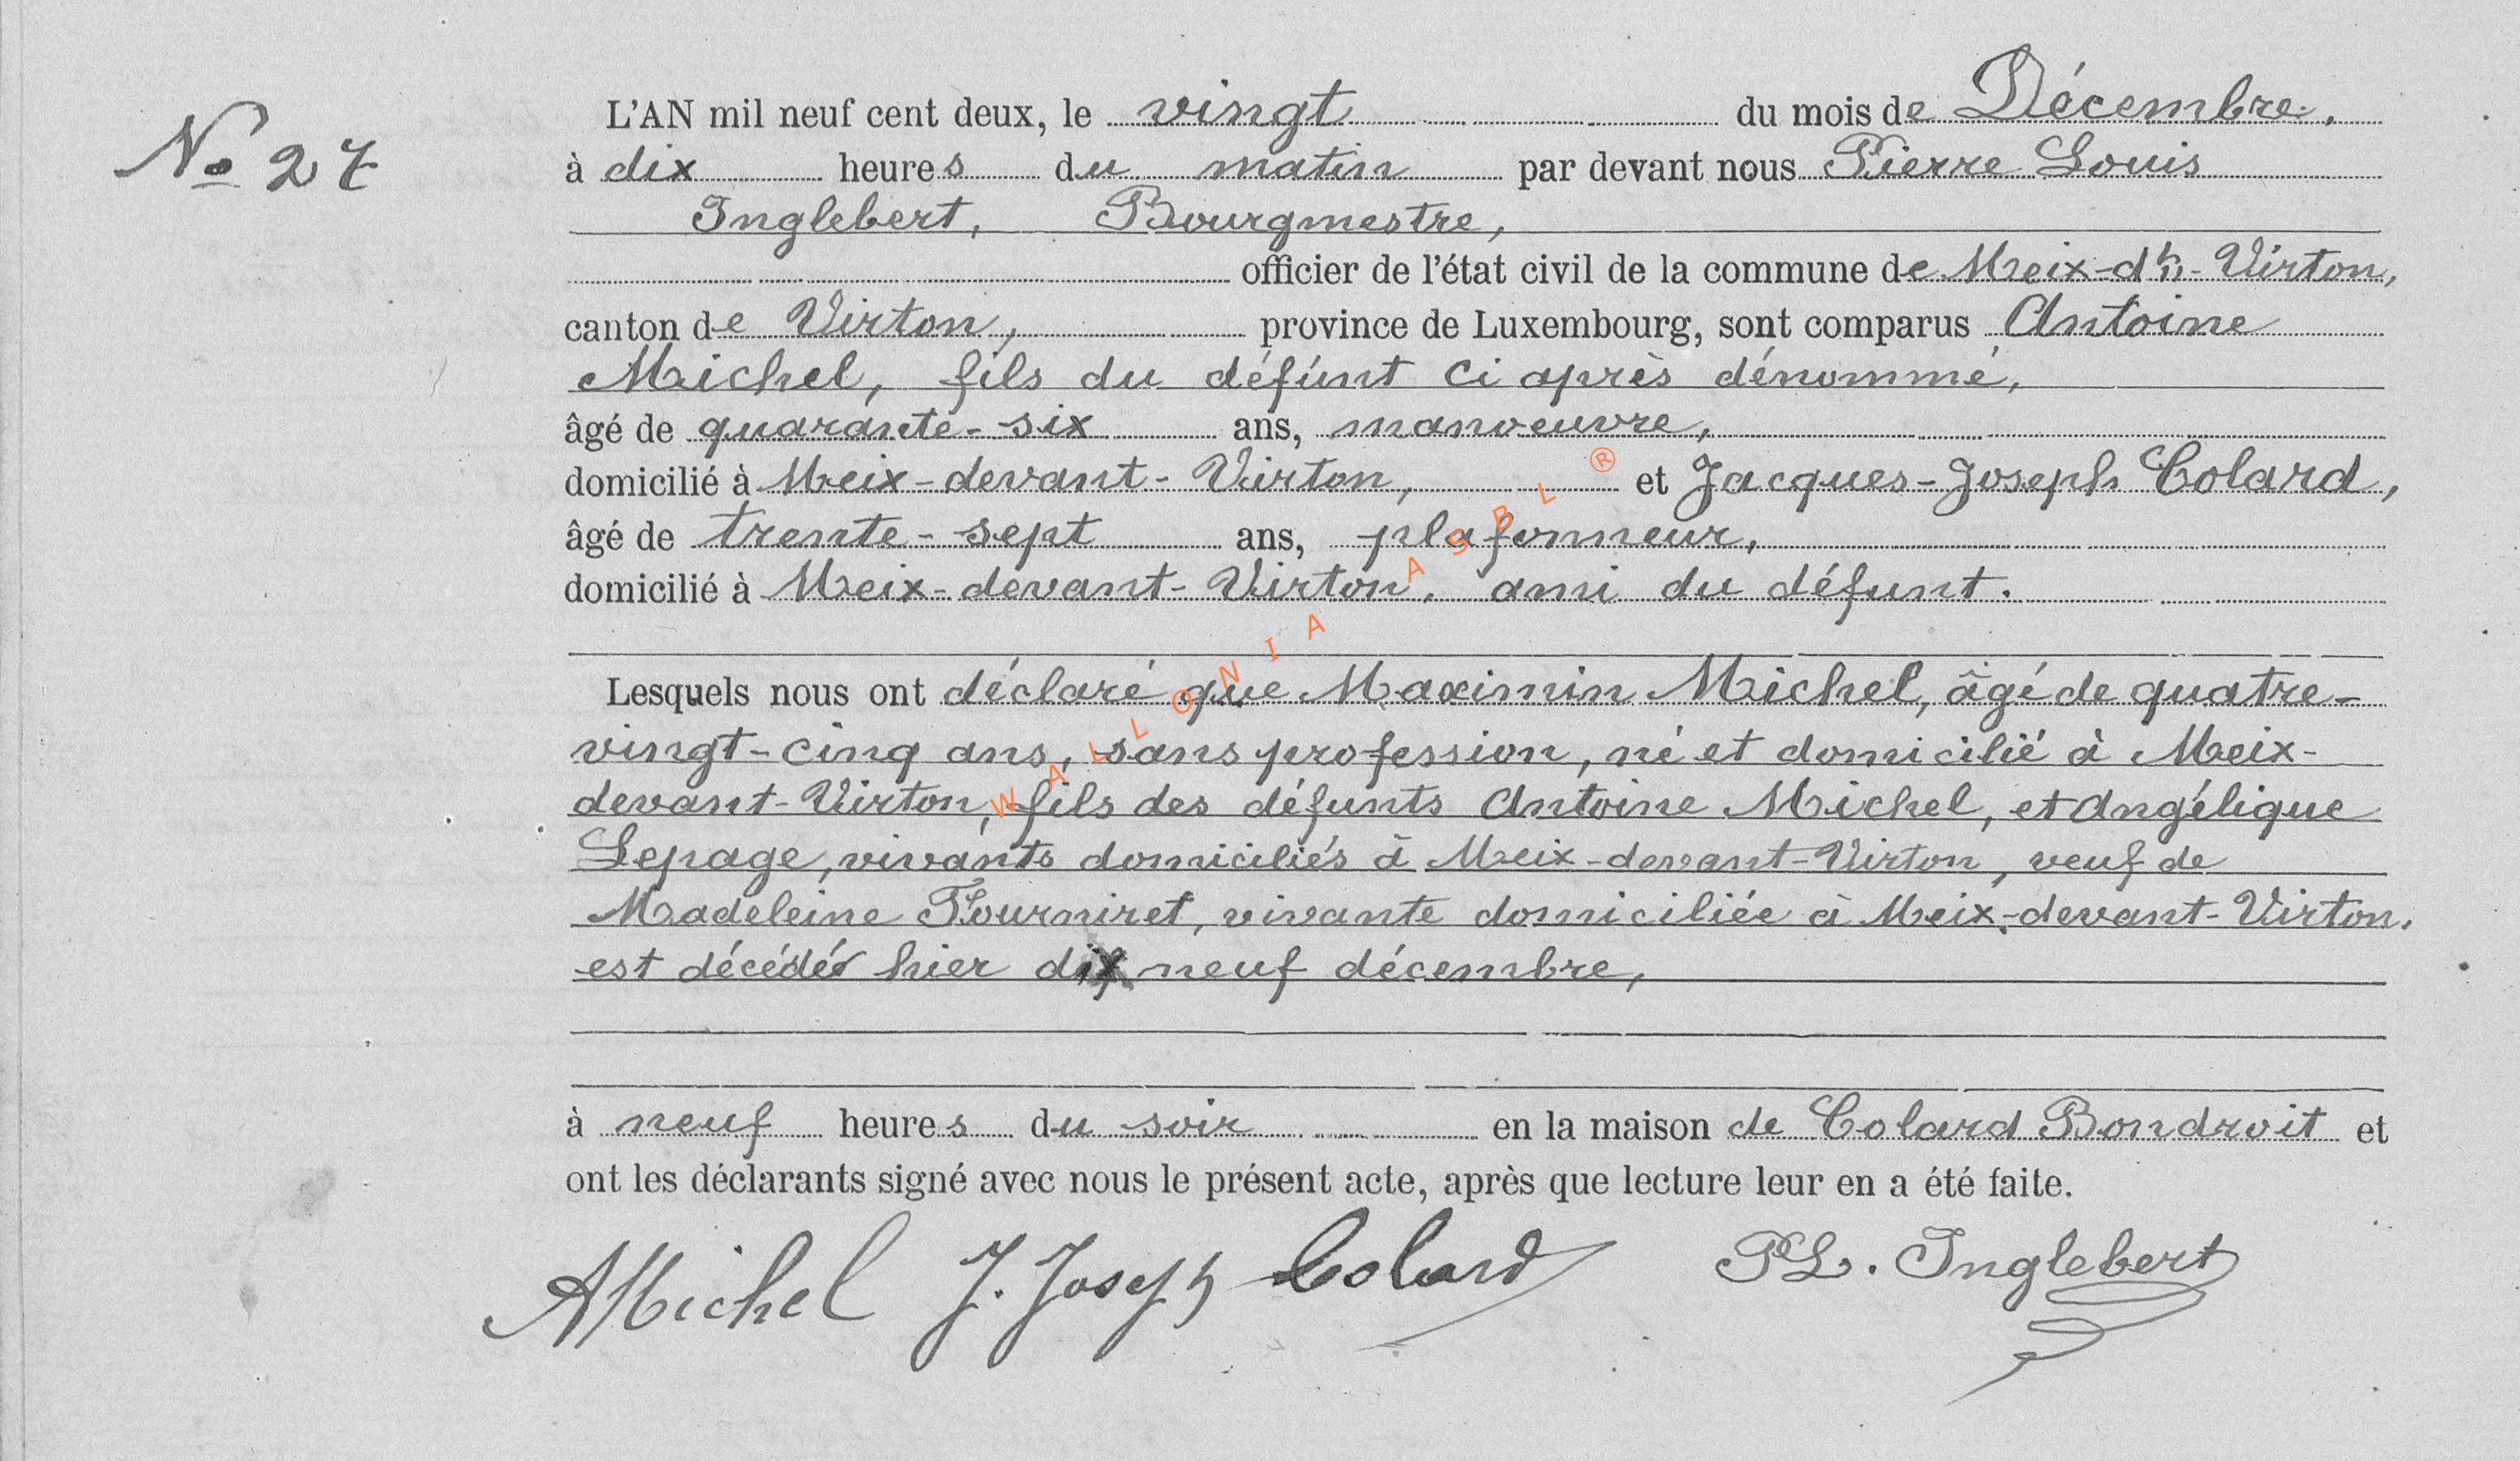 No 27
L'AN mil neuf cent deux, le vingt du mois de Décembre,
à dix heures du matin par devant nous Pierre Louis
Inglebert, Bourgmestre,
officier de l'état civil de la commune de Meix-dt-Virton,
canton de Virton, province de Luxembourg, sont comparus Antoine
Michel, fils du défunt ci après dénommé,
âgé de quarante-six ans, manoeuvre,
domicilié à Meix-devant-Virton, et Jacques-Joseph Colard,
âgé de trente-sept ans, plafonneur,
domicilié à Meix-devant-Virton, ami du défunt.
Lesquels nous ont déclaré que Maximin Michel, âgé de quatre-
vingt-cinq ans, sans profession, né et domicilié à Meix-
devant-Virton, fils des défunts Antoine Michel, et Angélique
Lepage, vivants domiciliés à Meix-devant-Virton, veuf de
Madeleine Fourniret, vivante domiciliée à Meix-devant-Virton,
est décédé hier dix neuf décembre,
à neuf heures du soir en la maison de Colard Bondroit et
ont les déclarants signé avec nous le présent acte, après que lecture leur en a été faite.
AMichel J. Joseph Colard PL. Inglebert
WALLONIA ASBL ®